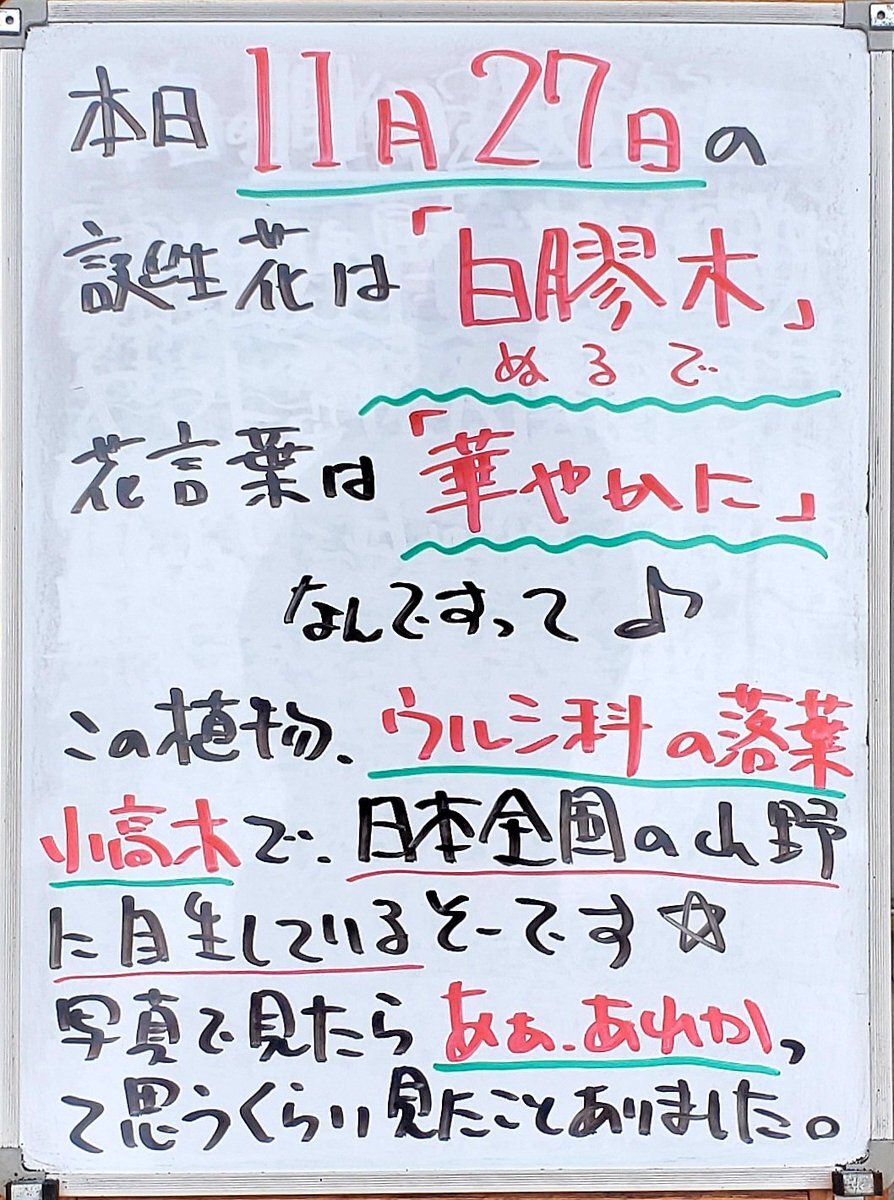 本日11月27日の
誕生花は「白膠木」
ぬるで
花言葉は「華やかに」
なんですって♪
この植物、ウルシ科の落葉
小高木で、日本全国の山野
に自生しているそーです☆
写真で見たらあぁ、あれかっ
て思うくらい見たことありました。